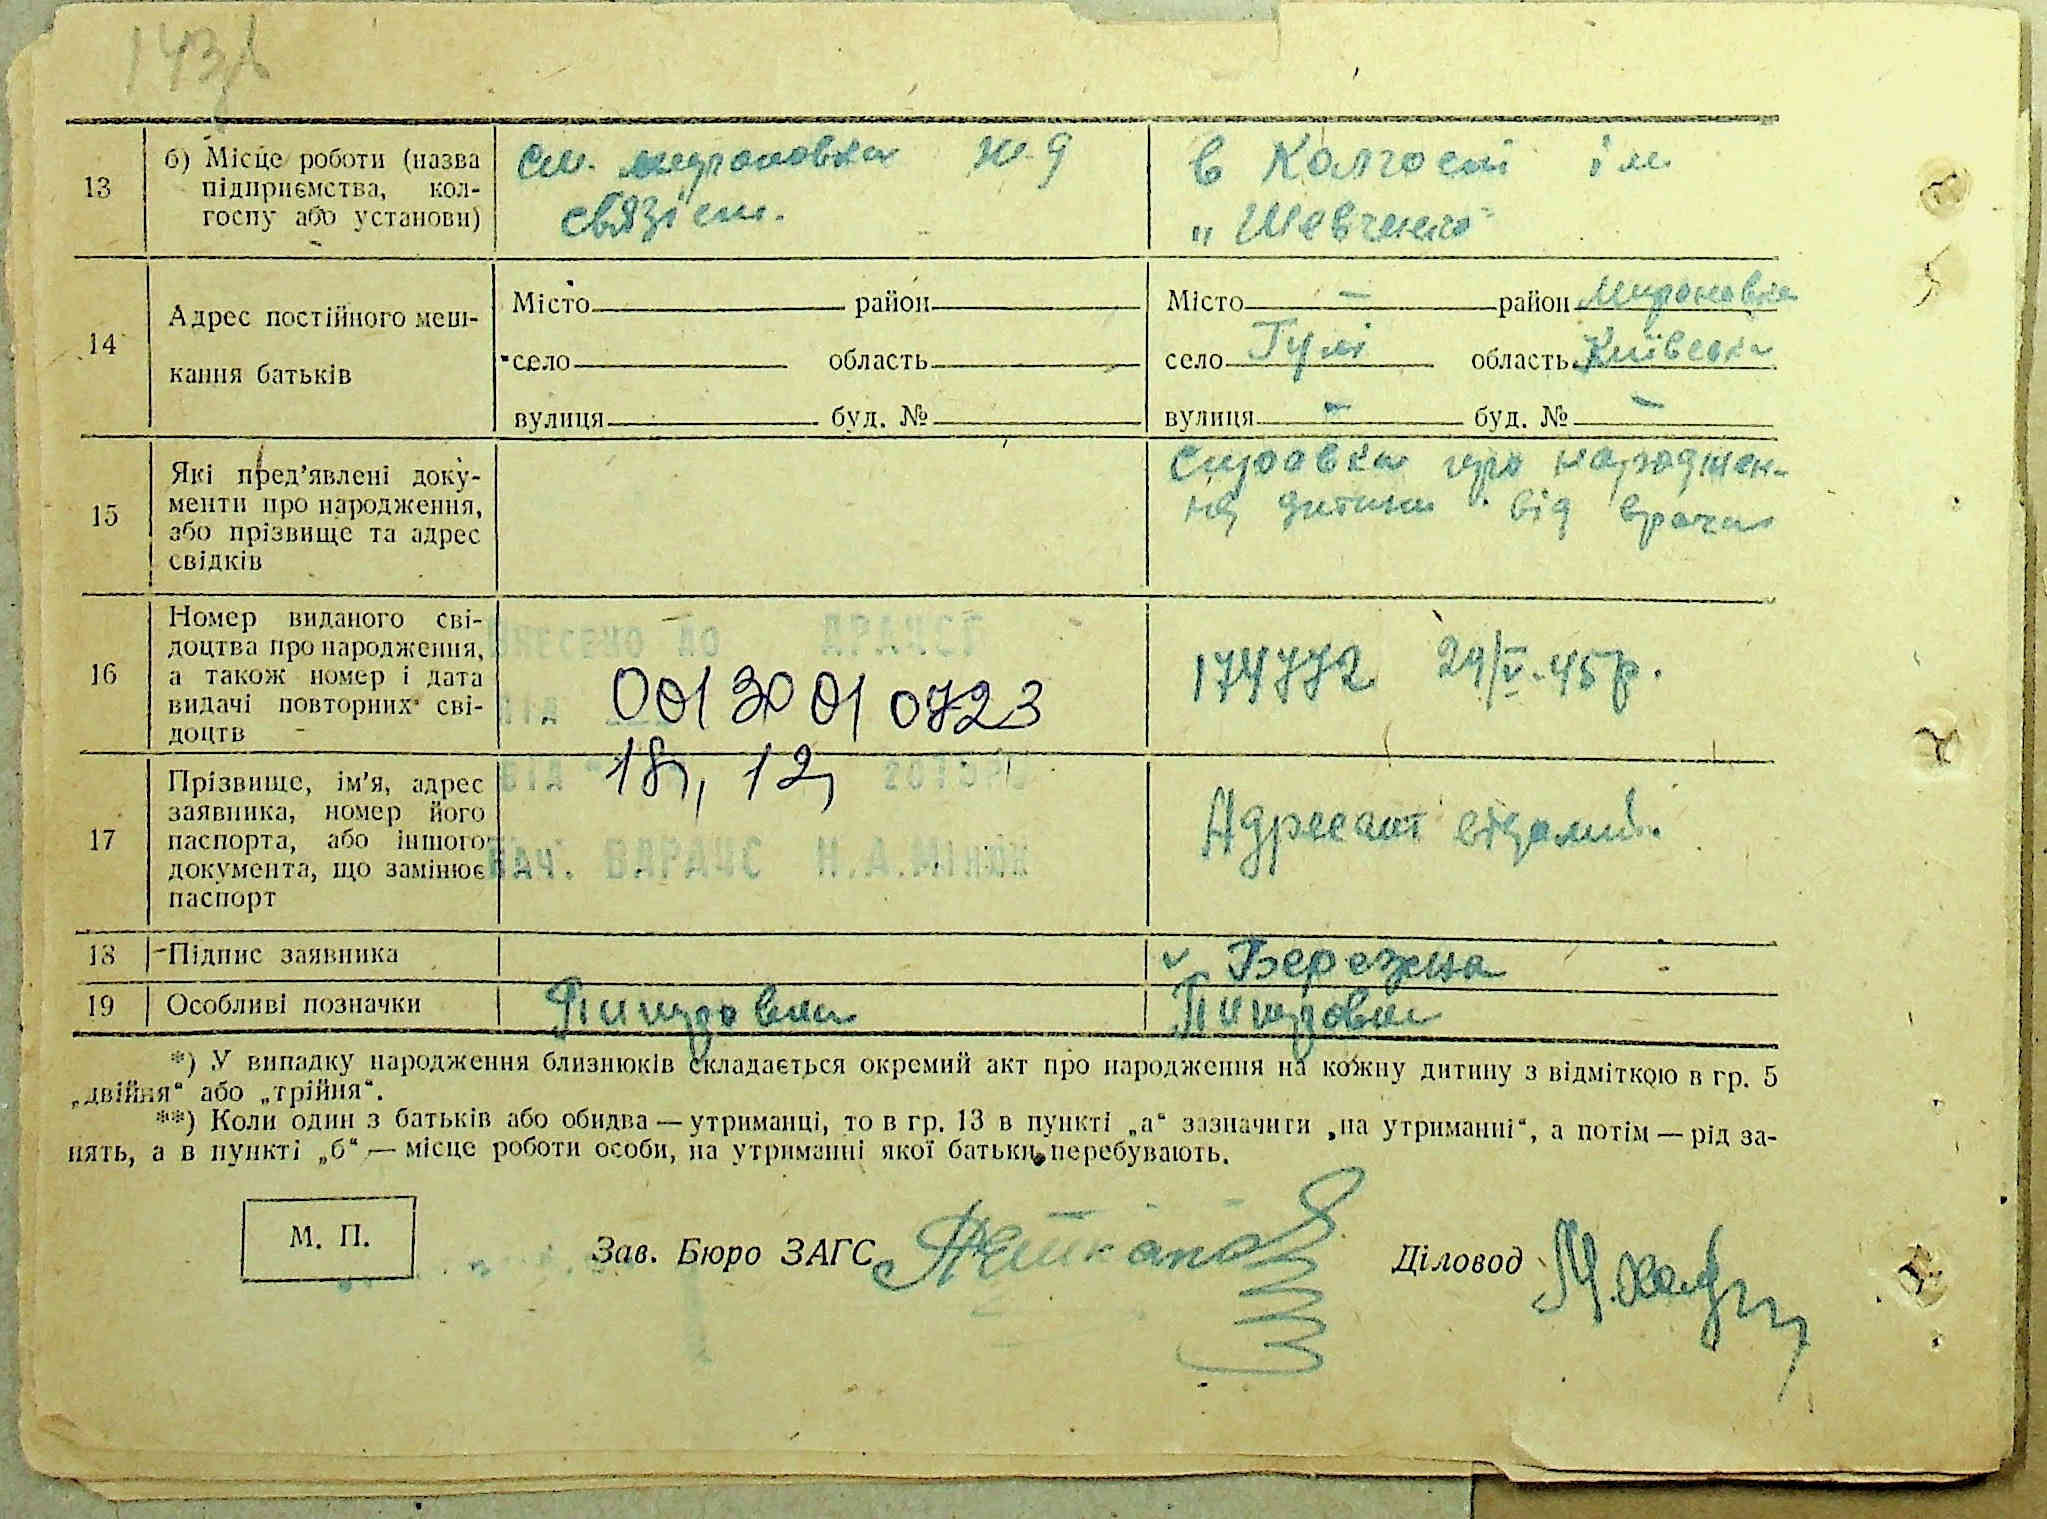 143зв
13
б) Місце роботи (назва
підприємства, кол-
госпу або установи)
ст. мироновка ж д
связіст.
в Колгоспі ім
„Шевченко"
14
Адрес постійного меш-
кання батьків
Місто район
село область
вулиця буд. №
Місто — район Мироновка
село Гулі область Київська
вулиця — буд. № —
15
Які пред’явлені доку-
менти про народження,
або прізвище та адрес
свідків
справка про народжен-
ня дитини від врача
16
Номер виданого сві-
доцтва про народження,
а також номер і дата
видачі повторних сві-
доцтв
ВНЕСЕНО ДО ДРАЧСГ
ПІД 00130010723
174772 29/V-45р.
17
Прізвище, ім’я, адрес
заявника, номер його
паспорта, або іншого
документа, що замінює
паспорт
ВІД 18, 12, 20
НАЧ. ВДРАЦС Н.А.МІНЮК
Адресат відомий.
18
Підпис заявника
v Бережна
19
Особливі позначки
*) У випадку народження близнюків складається окремий акт про народження на кожну дитину з відміткою в гр. 5
„двійня“ або „трійня“.
**) Коли один з батьків або обидва — утриманці, то в гр. 13 в пункті „а“ зазначити „на утриманні“, а потім — рід за-
нять, а в пункті „б“ — місце роботи особи, на утриманні якої батьки перебувають.
М. П.
Зав. Бюро ЗАГС
Діловод